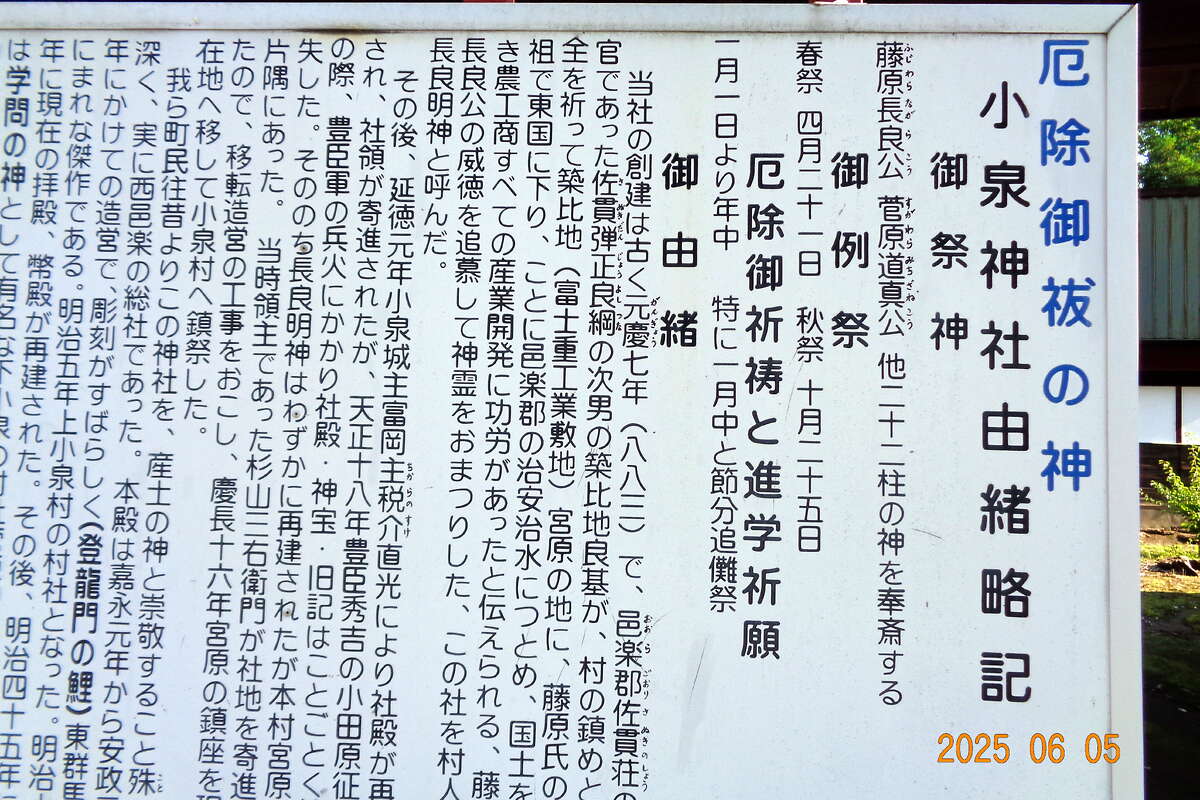 厄除御祓の神
小泉神社由緒略記
御祭神
藤原長良公 菅原道真公 他二十二柱の神を奉斎する
御例祭
春祭 四月二十一日 秋祭 十月二十五日
厄除御祈祷と進学祈願
一月一日より年中 特に一月中と節分追儺祭
御由緒
当社の創建は古く元慶七年(八八三)で、邑楽郡佐貫荘の
官であった佐貫弾正良綱の次男の築比地良基が、村の鎮めと
全を祈って築比地(富士重工業敷地)宮原の地に、藤原氏の
祖で東国に下り、ことに邑楽郡の治安治水につとめ、国土を
き農工商すべての産業開発に功労があったと伝えられる、藤
長良公の威徳を追慕して神霊をおまつりした、この社を村人
長良明神と呼んだ。
その後、延徳元年小泉城主富岡主税介直光により社殿が再
され、社領が寄進されたが、天正十八年豊臣秀吉の小田原征
の際、豊臣軍の兵火にかかり社殿・神宝・旧記はことごとく
失した。そののち長良明神はわずかに再建されたが本村宮原
片隅にあった。 当時領主であった杉山三右衛門が社地を寄進
たので、移転造営の工事をおこし、慶長十六年宮原の鎮座を
在地へ移して小泉村へ鎮祭した。
我ら町民往昔よりこの神社を、産土の神と崇敬すること殊
深く、実に西邑楽の総社であった。 本殿は嘉永元年から安政
年にかけての造営で、彫刻がすばらしく(登龍門の鯉)東群馬
にまれな傑作である。明治五年上小泉村の村社となった。明治
年に現在の拝殿、幣殿が再建された。その後、明治四十五年
は学問の神として有名な下小泉の村社
2025 06 05